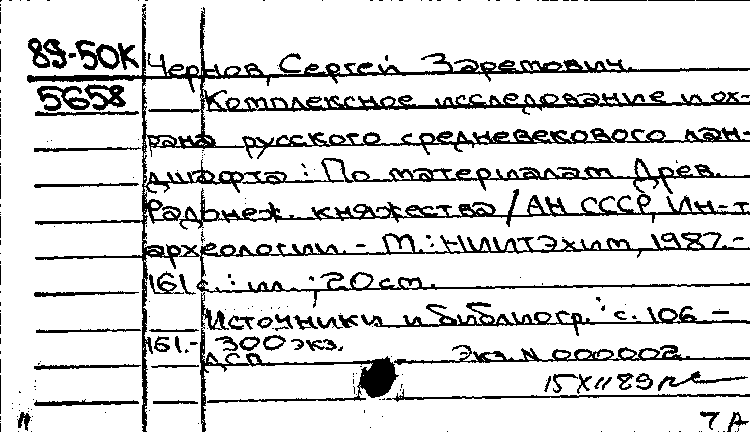 89-50К Чернов, Сергей Заремович.
5658 Комплексное исследование и ох-
рана русского средневекового лан-
дшафта : По материалам Древ.
Радонеж. княжества / АН СССР, Ин-т
археологии. - М. : НИИТЭхим, 1987. -
161 с. : ил. ; 20 см.
Источники и библиогр. : с. 106 -
161. - 300 экз.
ДСП. Экз. N 000002.
15 XII 89
"
7 А